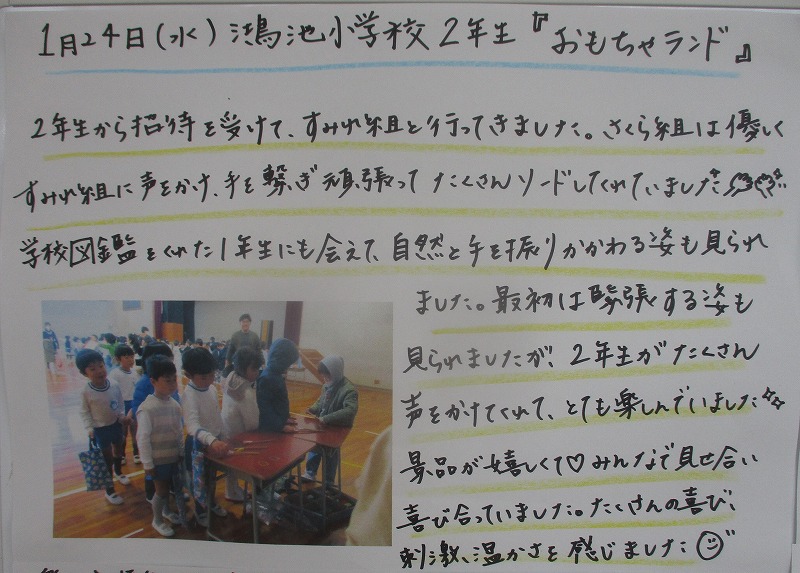 1月24日(水) 鴻池小学校2年生『おもちゃランド』
2年生から招待を受けて、すみれ組と行ってきました。さくら組は優しく
すみれ組に声をかけ、手を繋ぎ頑張ってたくさんソードしてくれていました
学校図鑑をくれた1年生にも会えて、自然と手を振りかかわる姿も見られ
ました。最初は緊張する姿も
見られましたが、2年生がたくさん
声をかけてくれて、とても楽しんでいました☆☆
景品が嬉しくて♡みんなで見せ合い
喜び合っていました。たくさんの喜び、
刺激、温かさを感じました☺